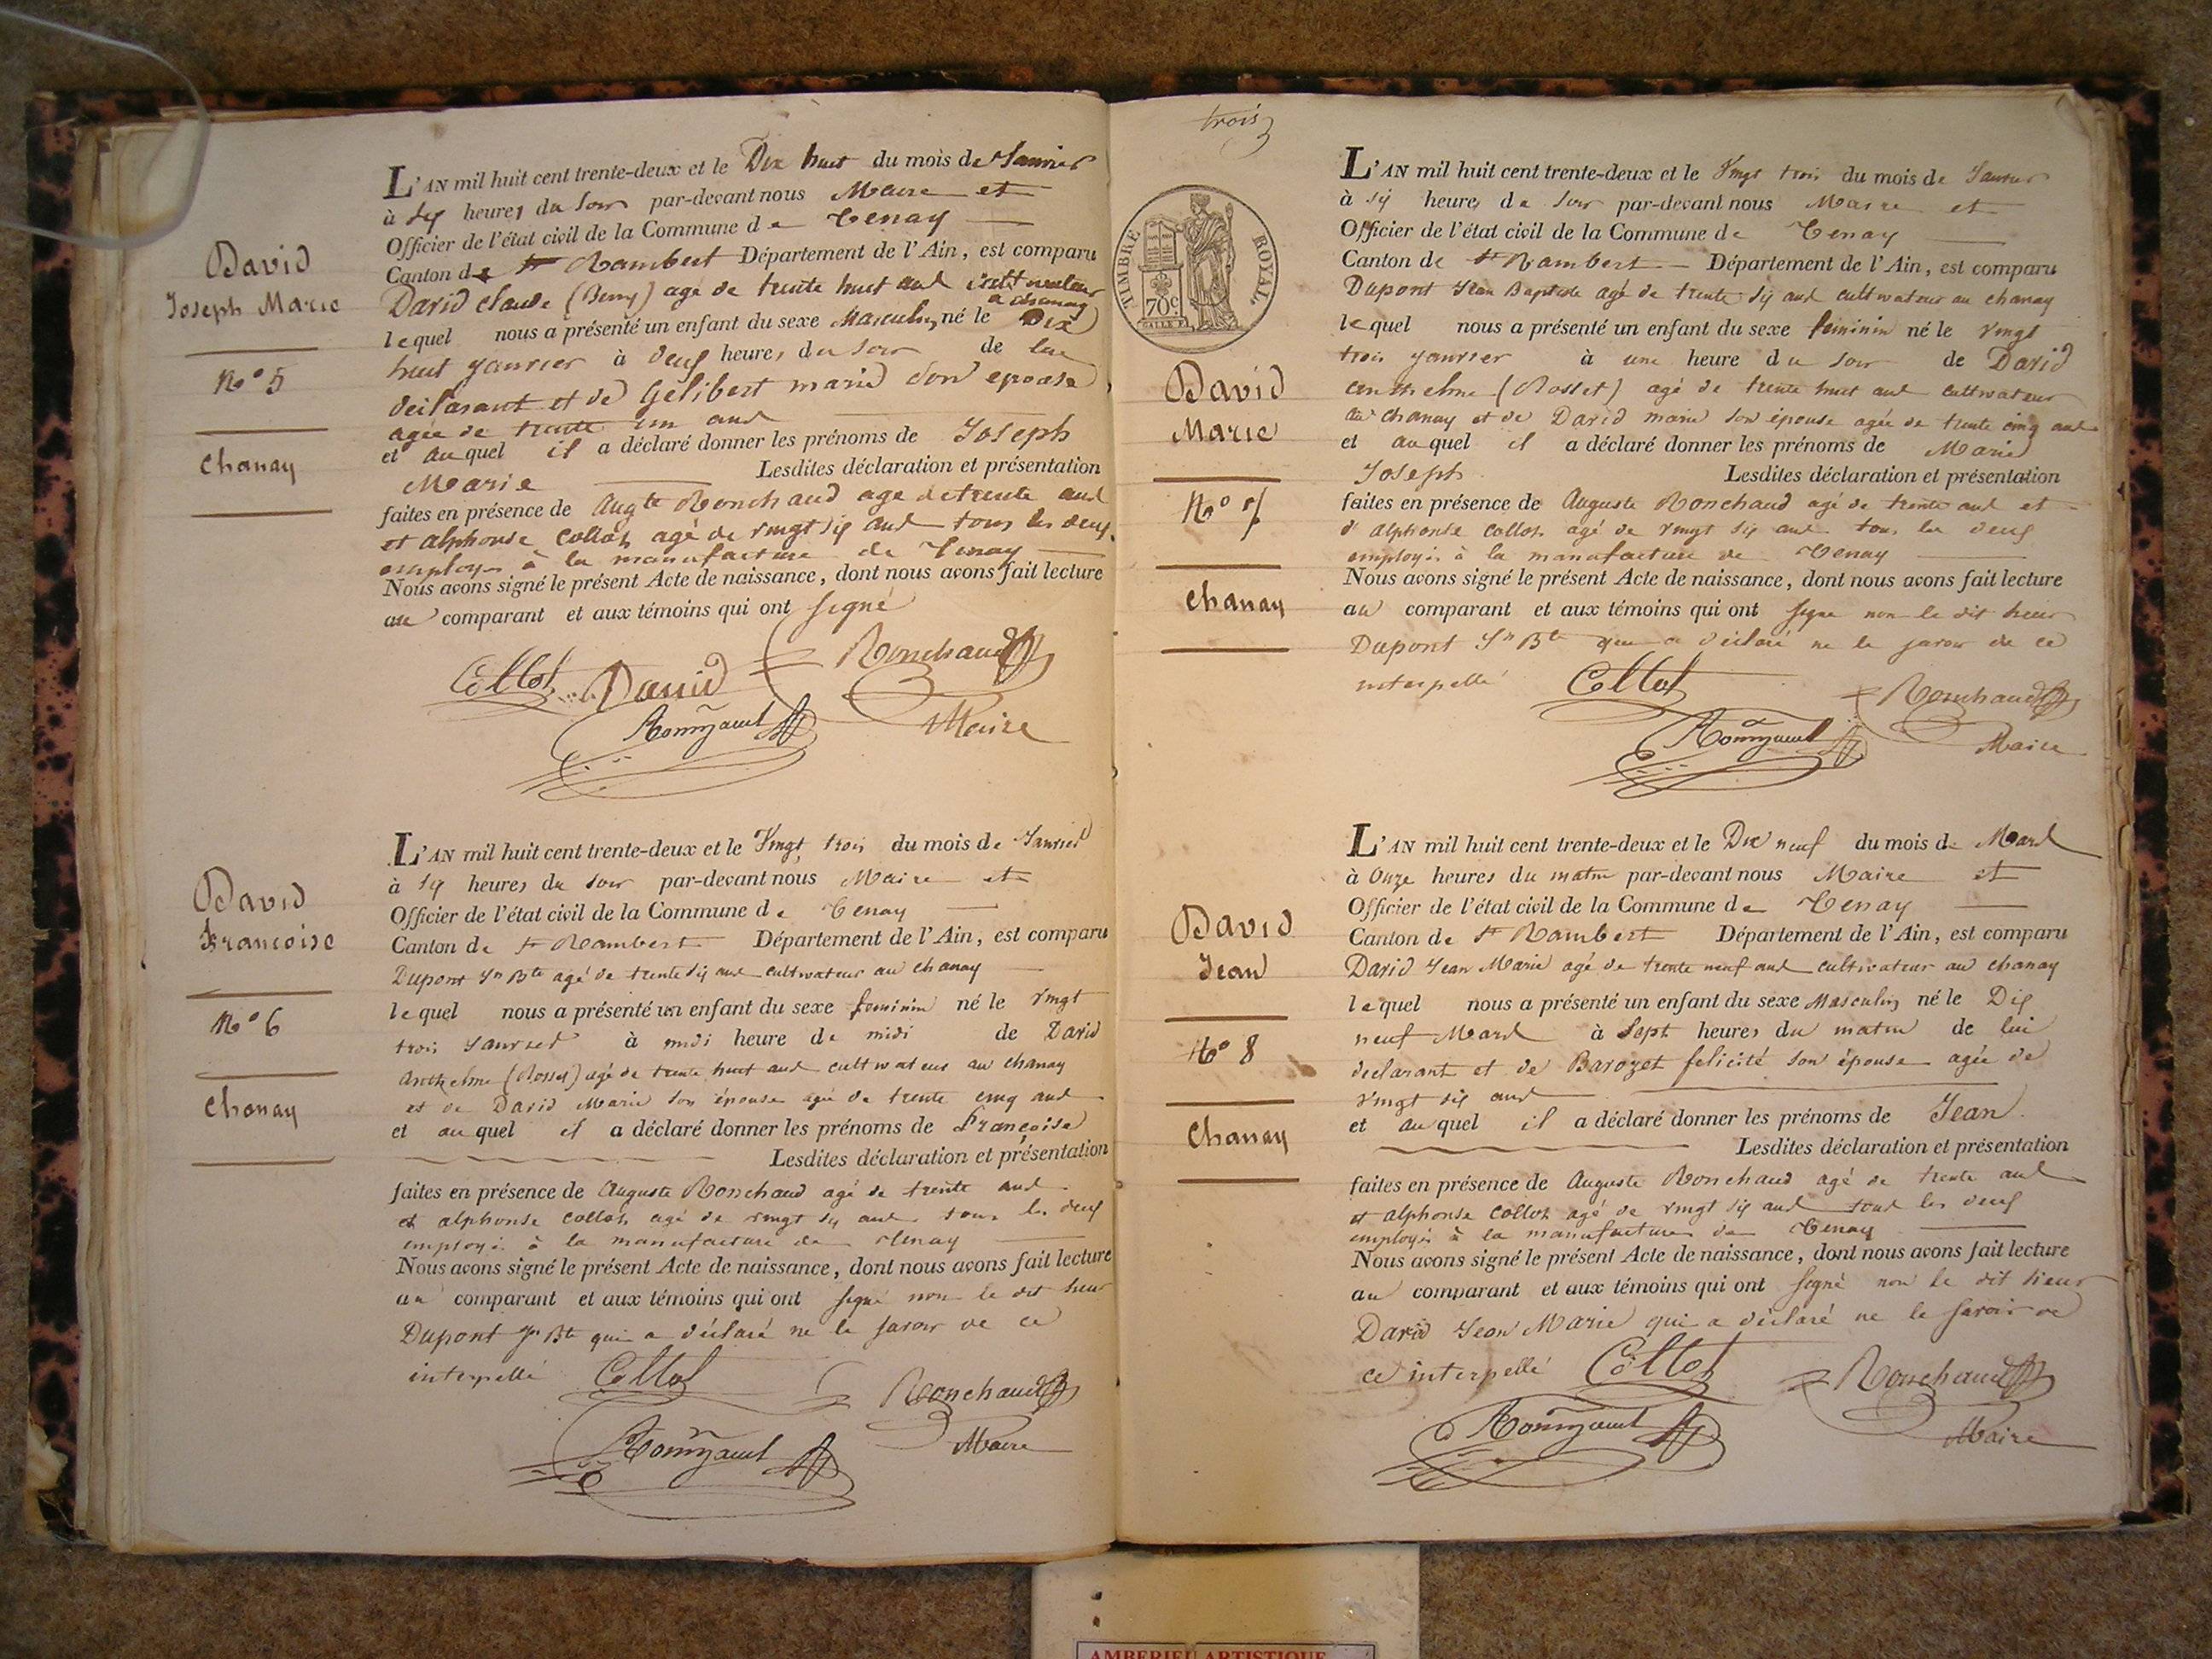 David
Joseph Marie
N° 5
Chanay
L'AN mil huit cent trente-deux et le Dix huit du mois de Janvier
à six heures du soir par-devant nous Maire et
Officier de l'état civil de la Commune de Tenay
Canton de St Rambert Département de l'Ain, est comparu
David Claude (Bemy) agé de trente huit ans cultivateur
a chanay
lequel nous a présenté un enfant du sexe Masculin né le Dix
huit janvier à deux heures du soir de lui
déclarant et de Gelibert marie son epouse
agée de trente un ans
et au quel il a déclaré donner les prénoms de Joseph
Marie Lesdites déclaration et présentation
faites en présence de Augte Ronchaud age de trente ans
et alphonse Collot agé de vingt six ans tous les deux
employés à la manufacture de Tenay
Nous avons signé le présent Acte de naissance, dont nous avons fait lecture
au comparant et aux témoins qui ont signé
Collot David Ronchaud
Maire
David
Francoise
N° 6
Chanay
L'AN mil huit cent trente-deux et le Vingt trois du mois de Janvier
à six heures du soir par-devant nous Maire et
Officier de l'état civil de la Commune de Tenay
Canton de St Rambert Département de l'Ain, est comparu
Dupont Jn Bte agé de trente six ans cultivateur au chanay
lequel nous a présenté un enfant du sexe feminin né le vingt
trois Janvier à midi heure de midi de David
anthelme (Rosset) agé de trente huit ans cultivateur au chanay
et de David Marie son épouse agée de trente cinq ans
et au quel il a déclaré donner les prénoms de Françoise
Lesdites déclaration et présentation
faites en présence de Auguste Ronchaud agé de trente ans
et alphonse Collot agé de vingt six ans tous les deux
employés à la manufacture de Tenay
Nous avons signé le présent Acte de naissance, dont nous avons fait lecture
au comparant et aux témoins qui ont signé non le dit sieur
Dupont Jn Bte qui a déclaré ne le savoir de ce
interpellé Collot Ronchaud
Maire
trois
TIMBRE ROYAL
70c
David
Marie
N° 7
Chanay
L'AN mil huit cent trente-deux et le Vingt trois du mois de Janvier
à six heures du soir par-devant nous Maire et
Officier de l'état civil de la Commune de Tenay
Canton de St Rambert Département de l'Ain, est comparu
Dupont Jean Baptiste agé de trente six ans cultivateur au chanay
lequel nous a présenté un enfant du sexe feminin né le vingt
trois janvier à une heure du soir de David
anthelme (Rosset) agé de trente huit ans cultivateur
au chanay et de David marie son épouse agée de trente cinq ans
et au quel il a déclaré donner les prénoms de Marie
Joseph Lesdites déclaration et présentation
faites en présence de Auguste Ronchaud agé de trente ans et
d'alphonse Collot agé de vingt six ans tous les deux
employés à la manufacture de Tenay
Nous avons signé le présent Acte de naissance, dont nous avons fait lecture
au comparant et aux témoins qui ont signé non le dit sieur
Dupont Jn Bte qui a déclaré ne le savoir de ce
interpellé Collot Ronchaud
Maire
David
Jean
N° 8
Chanay
L'AN mil huit cent trente-deux et le Dix neuf du mois de Mars
à Onze heures du matin par-devant nous Maire et
Officier de l'état civil de la Commune de Tenay
Canton de St Rambert Département de l'Ain, est comparu
David Jean Marie agé de trente neuf ans cultivateur au chanay
lequel nous a présenté un enfant du sexe Masculin né le Dix
neuf Mars à Sept heures du matin de lui
declarant et de Barozet felicité son épouse agée de
vingt six ans
et au quel il a déclaré donner les prénoms de Jean.
Lesdites déclaration et présentation
faites en présence de Auguste Ronchaud agé de trente ans
et alphonse Collot agé de vingt six ans tous les deux
employés à la manufacture de Tenay
Nous avons signé le présent Acte de naissance, dont nous avons fait lecture
au comparant et aux témoins qui ont signé non le dit sieur
David Jean Marie qui a déclaré ne le savoir de
ce interpellé Collot Ronchaud
Maire
AMBERIEU ARTISTIQUE